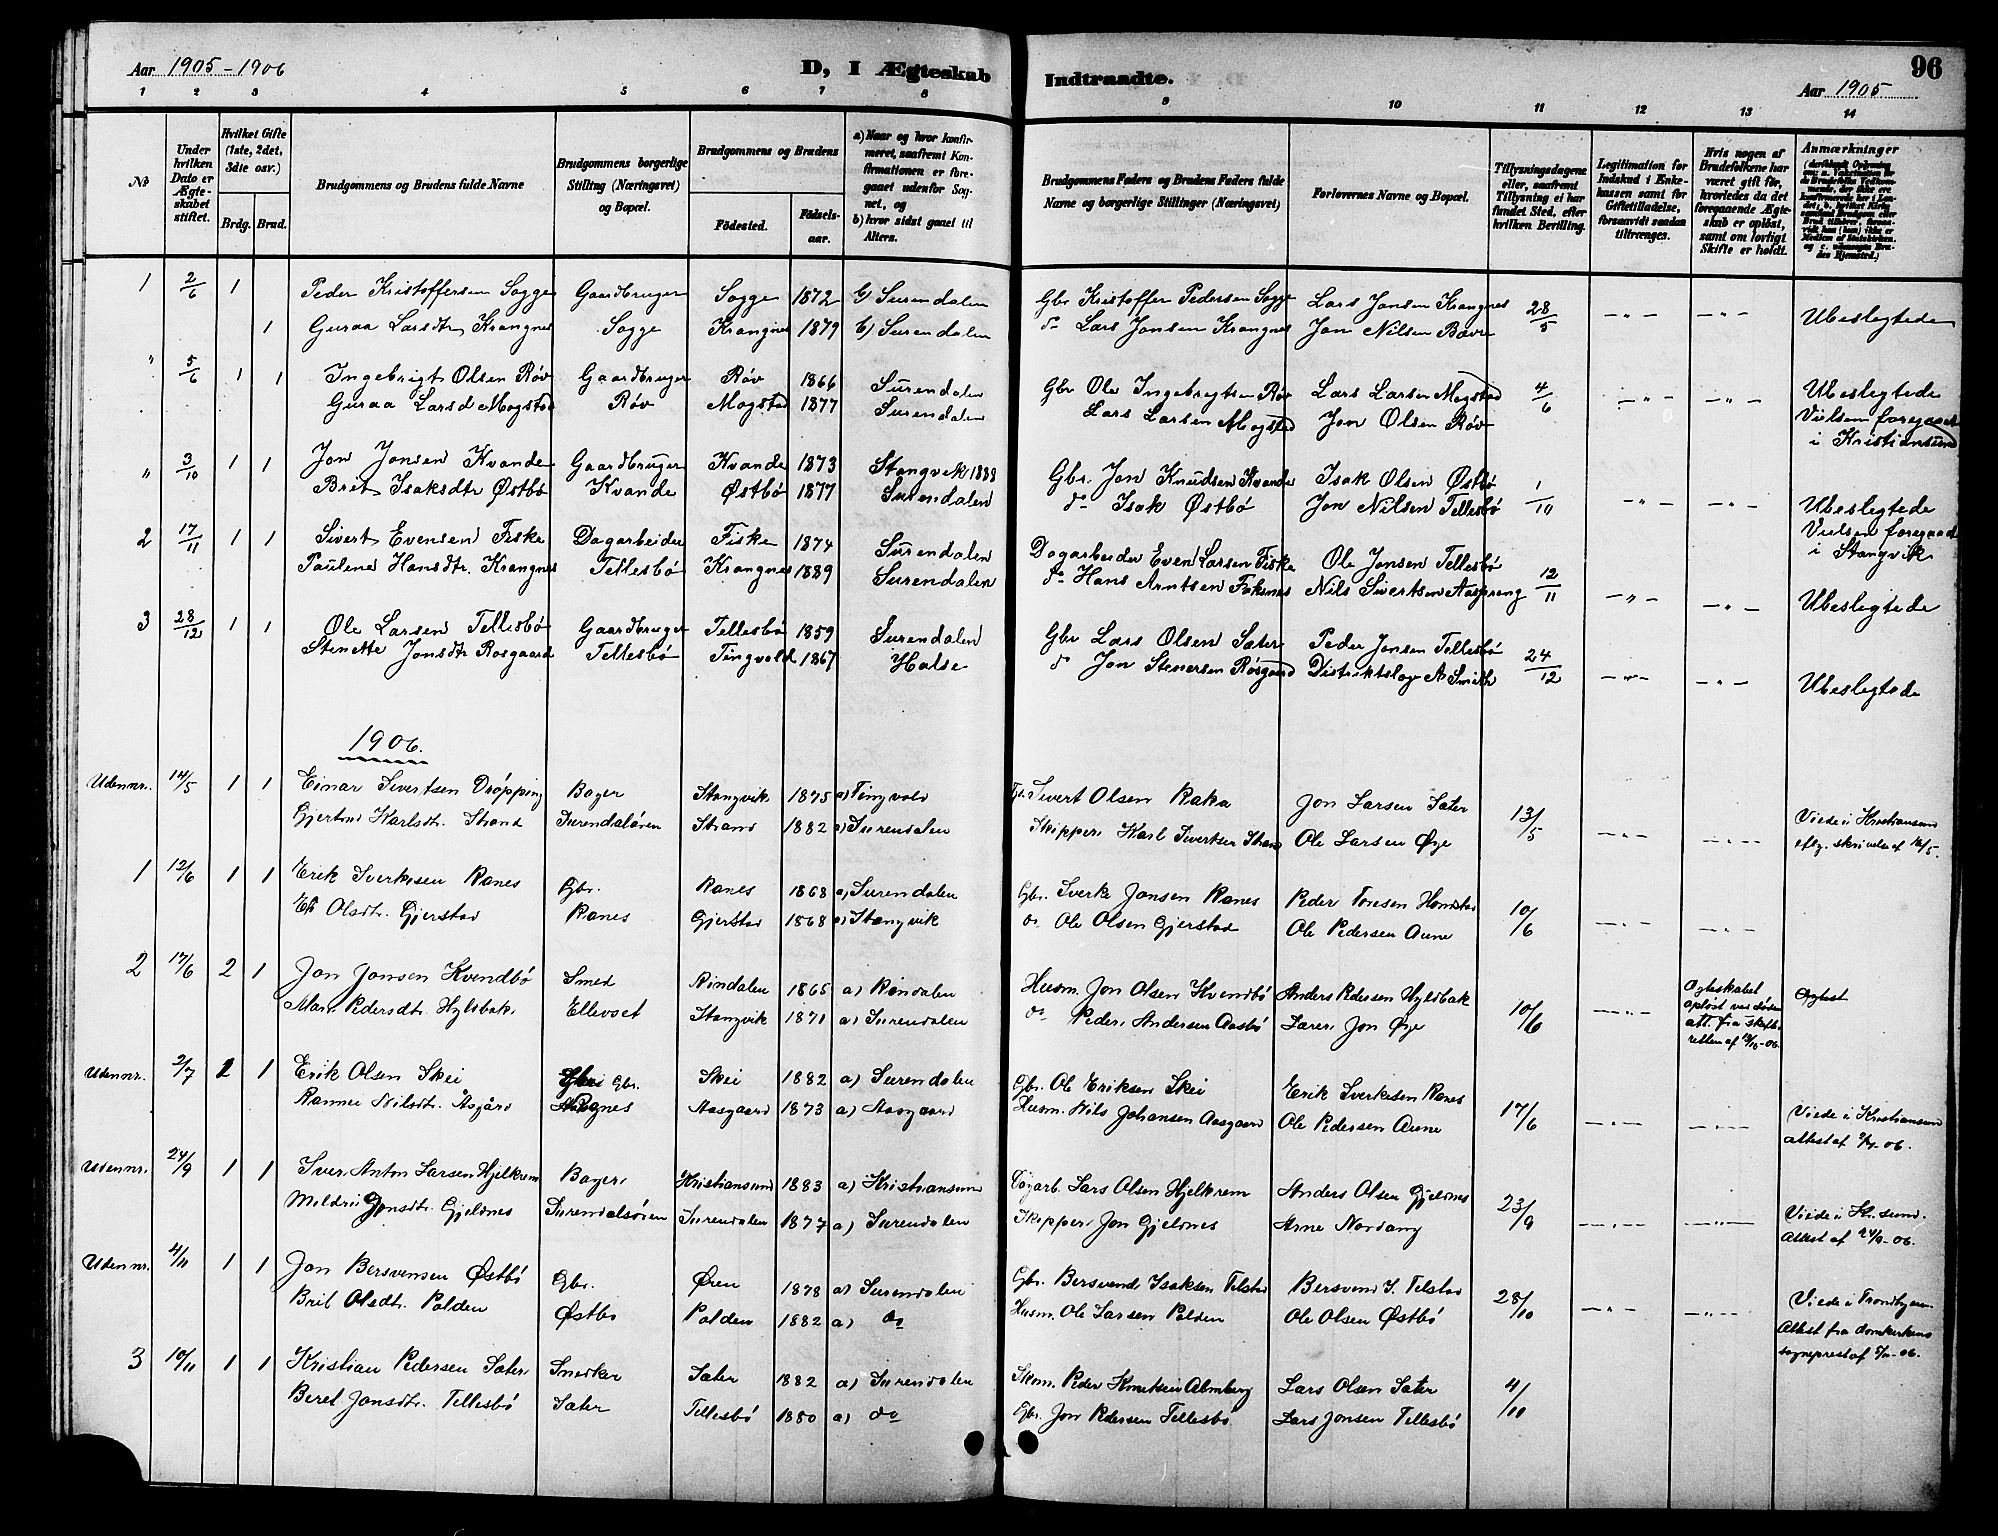 Aar 1905-1906
D, I Ægteskab Indtraadte.
Aar 1905
96
1 2 3 4 5 6 7 8 9 10 11 12 13 14
No
Under hvilken Dato er Ægteskabet stiftet.
Hvilket Gifte (1ste, 2det, 3die osv.)
Brdg. Brud.
Brudgommens og Brudens fulde Navne
Brudgommens borgerlige Stilling (Næringsvei) og Bopæl.
Brudgommens og Brudens
Födested. Födselsaar.
a) Naar og hvor konfirmeret, saafremt Konfirmationen er foregaaet udenfor Sognet, og
b) hvor sidst gaaet til Alters.
Brudgommens Faders og Brudens Faders fulde Navne og borgerlige Stillinger (Næringsvei)
Forlovernes Navne og Bopæl.
Tillysningsdagene eller, saafremt Tillysning ei har fundet Sted, efter hvilken Bevilling.
Legitimation for Indskud i Enkekassen samt for Giftetilladelse, forsaavidt saadan tiltrænges.
Hvis nogen af Brudefolkene har været gift før, hvorledes da det foregaaende Ægteskab er opløst, samt om lovligt Skifte er holdt.
Anmærkninger
1 2/6 1 Peder Kristoffersen Sogge Gaardbruger Sogge 1872 b) Surendalen Gbr Kristoffer Pedersen Sogge Lars Jonsen Krangnes 28/5 -"- -"- Ubeslegtede
1 Guraa Larsdtr Krangnes Sogge Krangnes 1879 b) Surendalen do Lars Jonsen Krangnes Jon Nilsen Bævre
" 5/6 1 1 Ingebrigt Olsen Røv Gaardbruger Røv 1866 Surendalen Gbr Ole Ingebrigtsen Røv Lars Larsen Mogstad 4/6 -"- -"- Ubeslegtede
Guraa Larsd Mogstad Røv Mogstad 1877 Surendalen Lars Larsen Mogstad Jon Olsen Røv Vielsen foregaaet
i Kristiansund
" 3/10 1 1 Jon Jonsen Kvande Gaardbruger Kvande 1873 Stangvik 1888 Gbr. Jon Knudsen Kvande Isak Olsen Østbø 1/10 -"- -"- Ubeslegtede
Brit Isaksdtr Østbø Kvande Østbø 1877 Surendalen do Isak Østbø Jon Nilsen Tellesbø Vielsen foregaaet
i Stangvik
2 17/11 1 1 Sivert Evensen Fiske Dagarbeider Fiske 1874 Surendalen Dagarbeider Even Larsen Fiske Ole Jonsen Tellesbø 12/11 -"- -"- Ubeslegtede
Paulena Hansdtr. Krangnes Tellesbø Krangnes 1889 Surendalen do Hans Arntsen Nils Sivertsen Aaspreng
3 28/12 1 1 Ole Larsen Tellesbø Gaardbruger Tellesbø 1859 Surendalen Gbr Lars Olsen Sæter Peder Jonsen Tellesbø 24/12 -"- -"- Ubeslegtede
Stenette Jonsdtr Rosgaard Tellesbø Tingvold 1867 Halse do Jon Stenersen Røsgaard Distriktslæge A Smith
1906.
Uden nr. 14/5 1 1 Einar Sivertsen Drøpping Bager Stangvik 1875 a) Tingvold Sivert Olsen Raka Jon Larsen Sæter 13/5 -"- -"- Viede i Kristiansund
Gjertrud Karlsdtr. Strand Surendalsøren Strand 1882 a) Surendalen Skipper Karl Sivertsen Strand Ole Larsen Øye eflg. skrivelse af 16/5.
1 12/6 1 1 Erik Sverkesen Ranes Gbr. Ranes 1868 a) Surendalen Gbr. Sverke Jonsen Ranes Peder Toresen Honstad 10/6 -"- -"-
Eli Olsdtr. Gjerstad Ranes Gjerstad 1868 a) Stangvik do Ole Olsen Gjerstad Ole Pedersen Aune
2 17/6 2 1 Jon Jonsen Kvendbø Smed Rindalen 1865 a) Rindalen Husm. Jon Olsen Kvendbø Anders Pedersen Hyldbak 10/6 -"- Ægteskabet opløst ved døden att. fra skifteretten af
Mari Pedersdtr. Hyldbak Ellevset Stangvik 1871 a) Surendalen do Peder Andersen Aasbø Lærer Jon Øye
Uden nr. 2/7 1 1 Erik Olsen Skei Gbr. Skei 1882 a) Surendalen Gbr. Ole Eriksen Skei Erik Sverkesen Ranes 17/6 -"- -"- Viede i Kristiansund
Rannei Nilsdtr. Åsgård Aasgaard 1873 a) Aasgaard Husm. Nils Johansen Aasgaard Ole Pedersen Aune attest af 2/7-06.
Uden nr. 24/9 1 1 Iver Anton Larsen Hjelkrem Bager Kristiansund 1883 a) Kristiansund Lars Olsen Hjelkrem Anders Olsen Gjeldnes 23/9 -"- -"- Viede i Kr.sund.
Mildrid Jonsdtr. Gjeldnes Surendalsøren Surendalen 1877 a) Surendalen Skipper Jon Gjeldnes Arne Nordang Attest af 24/9-06.
Uden nr. 4/11 1 1 Jon Bersvensen Østbø Gbr. Øren 1878 a) Surendalen Gbr. Bersvend Isaksen Telstad Bersvend I. Telstad 28/10 -"- -"- Viede i Trondhjem
Brit Olsdtr. Polden Østbø Polden 1882 a) do Husm. Ole Larsen Polden Ole Olsen Østbø Attest fra domkirkens
sogneprest af 5/11-06.
3 10/11 1 1 Kristian Pedersen Sæter Snedker Sæter 1882 a) Surendalen Skom. Peder Knutsen Almberg Lars Olsen Sæter 4/10
Beret Jonsdtr. Tellesbø Sæter Tellesbø 1880 a) do Gbr. Jon Pedersen Tellesbø Lars Jonsen Tellesbø